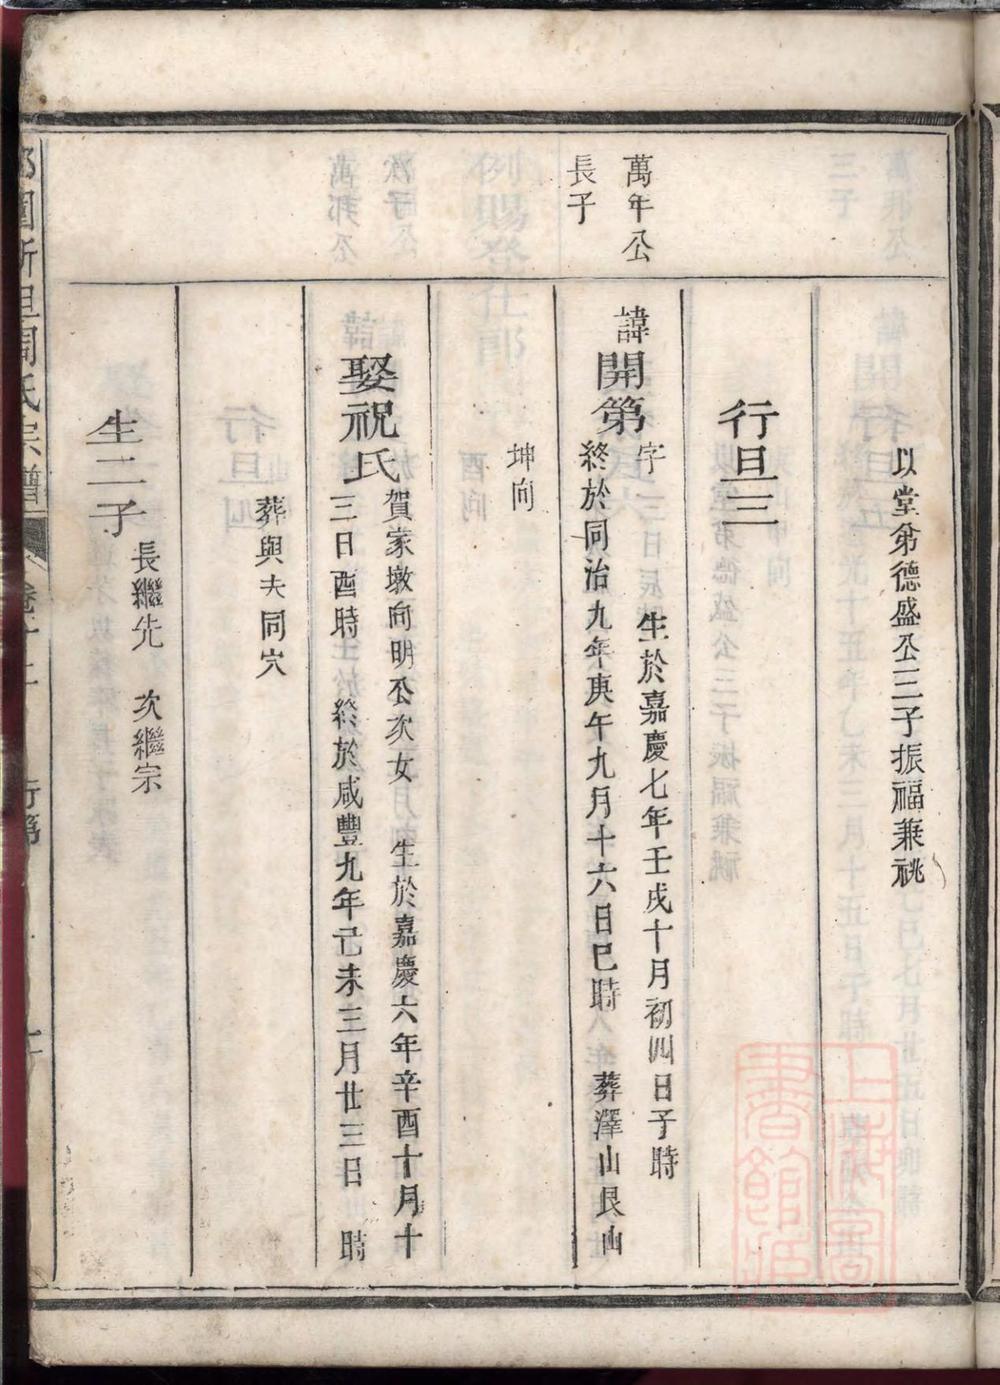 以堂弟德盛公三子振福兼祧
行旦三
萬年公
長子
諱開第
字 生於嘉慶七年壬戌十月初四日子時
終於同治九年庚午九月十六日巳時 葬澤山艮山
坤向
娶祝氏
賀家墩向明公次女 生於嘉慶六年辛酉十月十
三日酉時 終於咸豐九年己未三月廿三日 時
葬與夫同穴
生二子
長繼先 次繼宗
周氏宗譜
行第